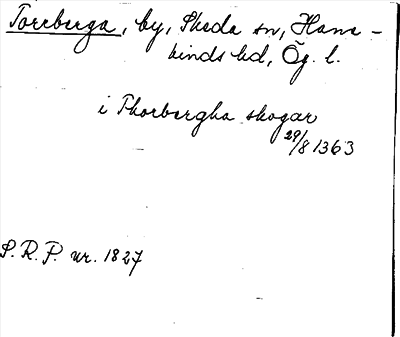 Torrberga, by, Skeda sn, Hane-
kinds hd, Ög. l.
i Thorbergha skogar
29/8 1363
S.R.P. nr. 1827